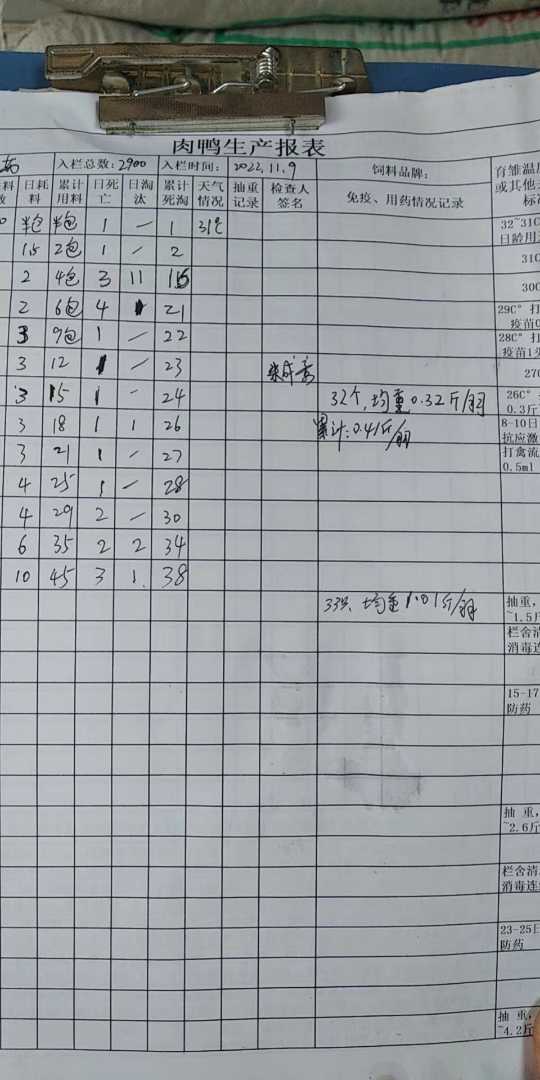 肉鸭生产报表
入栏总数: 2900 入栏时间: 2022.11.9 饲料品牌: 育雏温
日耗料 累计用料 日死亡 日淘汰 累计死淘 天气情况 抽重记录 检查人签名 免疫、用药情况记录 或其他 标
半包 半包 1 — 1 31℃ 32~31C
日龄用
1.5 2包 1 — 2 31C
2 4包 3 11 16 30C
2 6包 4 21 29C° 打
疫苗
3 9包 1 — 22 28C° 打
疫苗1
3 12 1 — 23 27C
3 15 1 — 24 32个,均重0.32斤/羽 26C°
0.3斤
3 18 1 1 26 累计:0.41斤/羽 8-10日
抗应激
3 21 1 — 27 打禽流
0.5ml
4 25 1 — 28
4 29 2 — 30
6 35 2 2 34
10 45 3 1 38
均重1.01斤/羽 抽重,
~1.5斤
栏舍清
消毒连
15-17
防药
抽 重,
~2.6斤
栏舍清
消毒连
23-25日
防药
抽 重,
~4.2斤